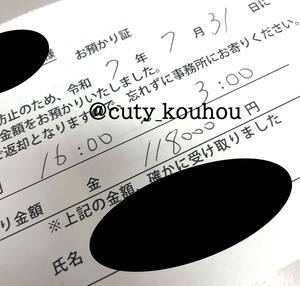 様 お預かり証
防止のため、令和 7 年 7 月 31 日に
金額をお預かりいたしました。
@cuty_kouhou
返却となりますので、忘れずに事務所にお寄りください。
16:00
3:00
り金額 金 118000 円
※上記の金額、確かに受け取りました
氏名